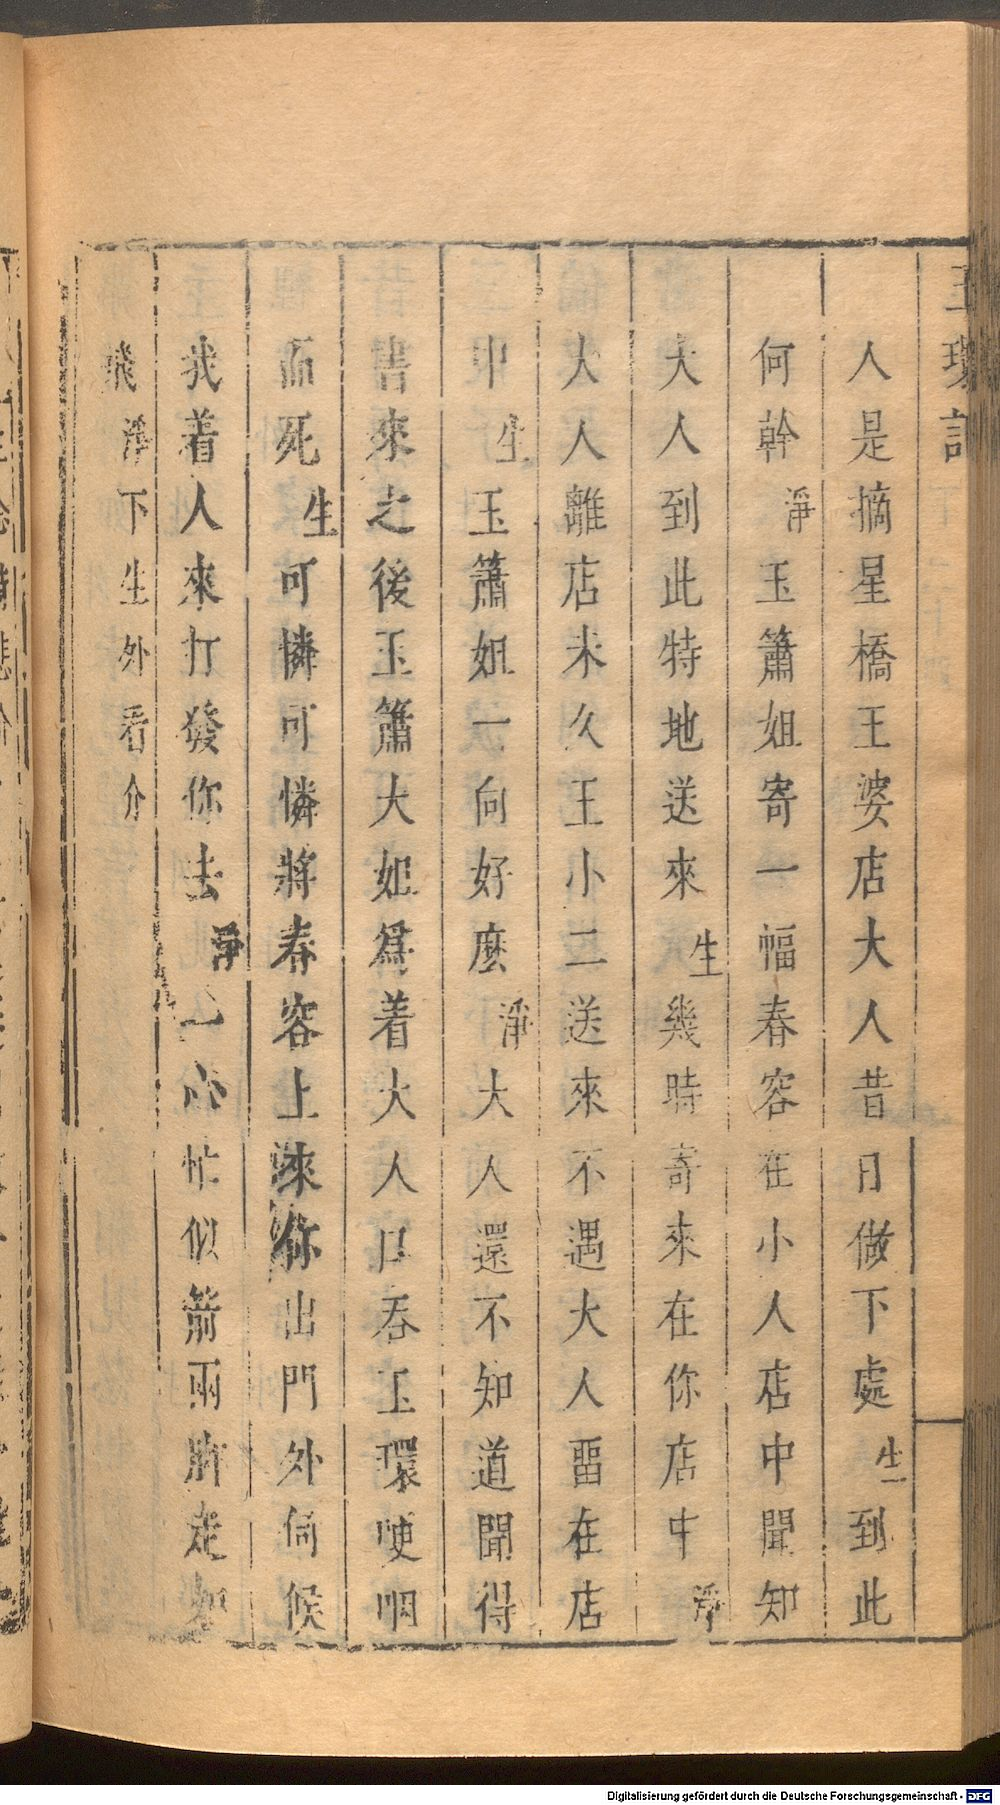 玉環記
人是摘星橋王婆店大人昔日做下處生到此
何幹淨玉簫姐寄一幅春容在小人店中聞知
大人到此特地送來生幾時寄來在你店中淨
大人離店未久王小二送來不遇大人畱在店
中生玉簫姐一向好麽淨大人還不知道聞得
書來之後玉簫大姐爲着大人口吞玉環哽咽
而死生可憐可憐將春容上來你出門外伺候
我着人來打發你去淨一心忙似箭兩脚走如
飛淨下生外看介
Digitalisierung gefördert durch die Deutsche Forschungsgemeinschaft - DFG